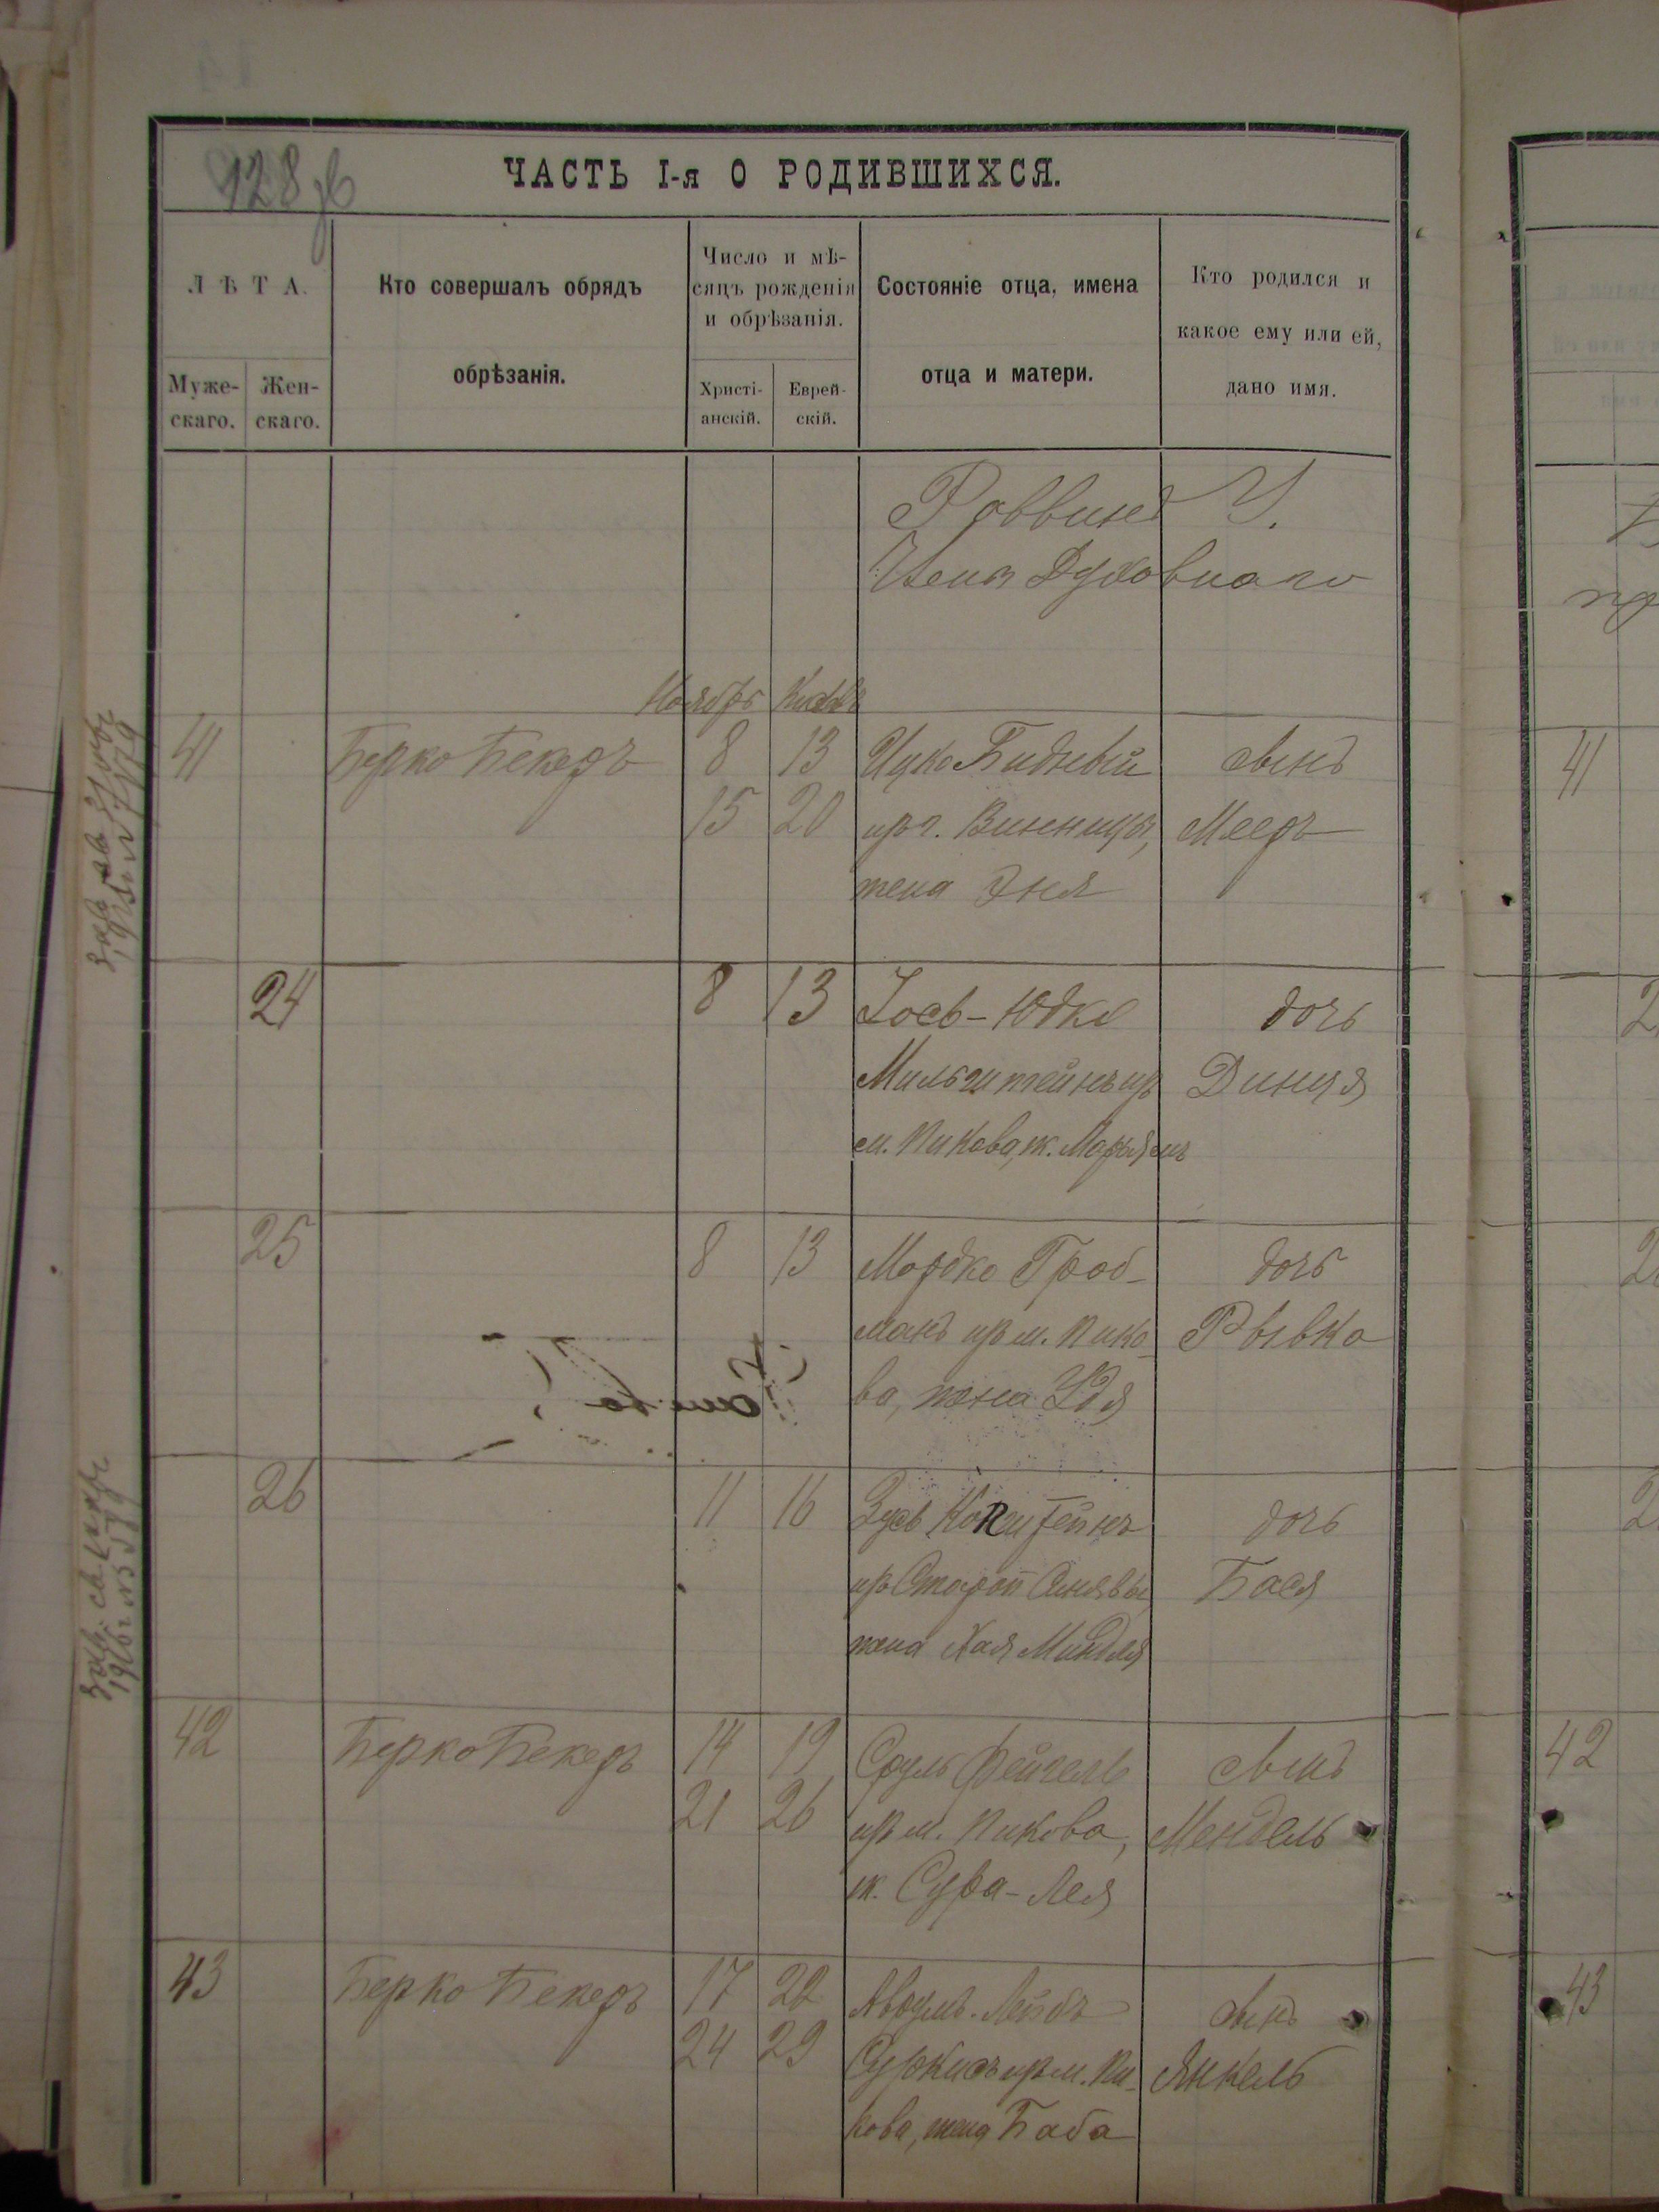 128 об
ЧАСТЬ I-я О РОДИВШИХСЯ.
ЛѢТА.
Муже-
скаго.
Жен-
скаго.
Кто совершалъ обрядъ
обрѣзанія.
Число и мѣ-
сяцъ рожденія
и обрѣзанія.
Христі-
анскій.
Еврей-
скій.
Состояніе отца, имена
отца и матери.
Кто родился и
какое ему или ей,
дано имя.
Раввинъ
Члена Духовнаго
Ноябрь
41
Берко Бекеръ
8 13
15 20
Ицко Бидный
из г. Винницы,
жена Эня
сынъ
Мееръ
24
8 13
Іось-Юдко
Мильштейнъ из
м. Пикова, ж. Марьямъ
дочь
Динця
25
8 13
Мордко Гроб-
манъ из м. Пико-
ва, жена Удя
дочь
Рывка
26
11 16
Зусь Копштейнъ
из Старой Синявы
жена Хая Миндля
дочь
Бася
42
Берко Бекеръ
14 19
21 26
Сруль Фейгель
из м. Пикова,
ж. Сура-Лея
сынъ
Мендель
43
Берко Бекеръ
17 22
24 29
Аврумъ-Лейбъ
Суркисъ из м. Пи-
кова, жена Баба
сынъ
Янкель
41
42
43